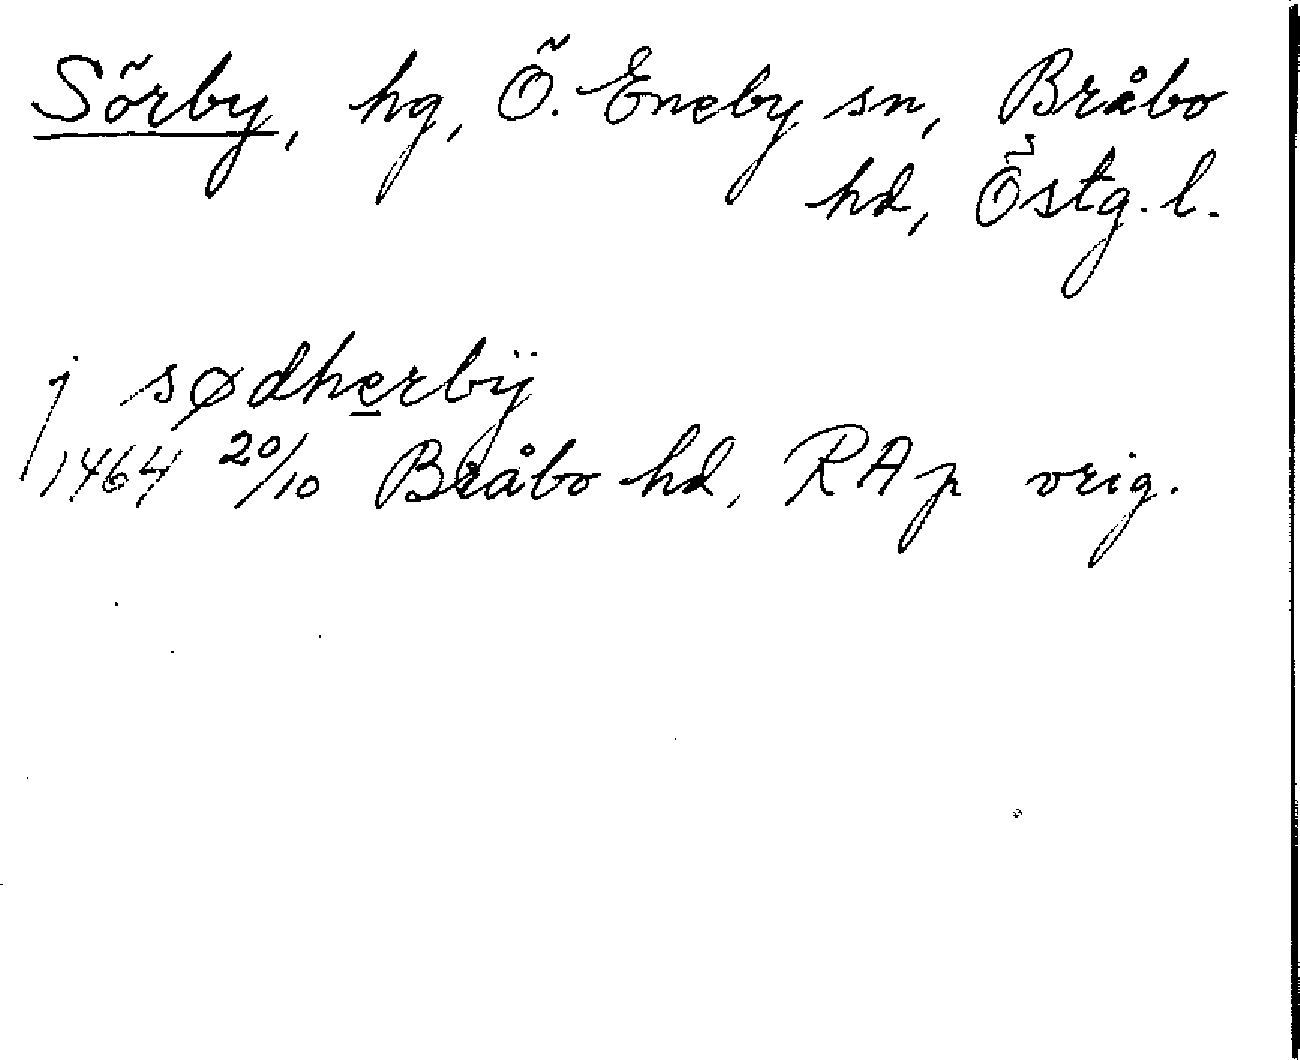 Sörby, hg, Ö. Eneby sn, Bråbo
hd, Östg. l.
j sødherbÿ
1464 20/10 Bråbo hd, RAp orig.